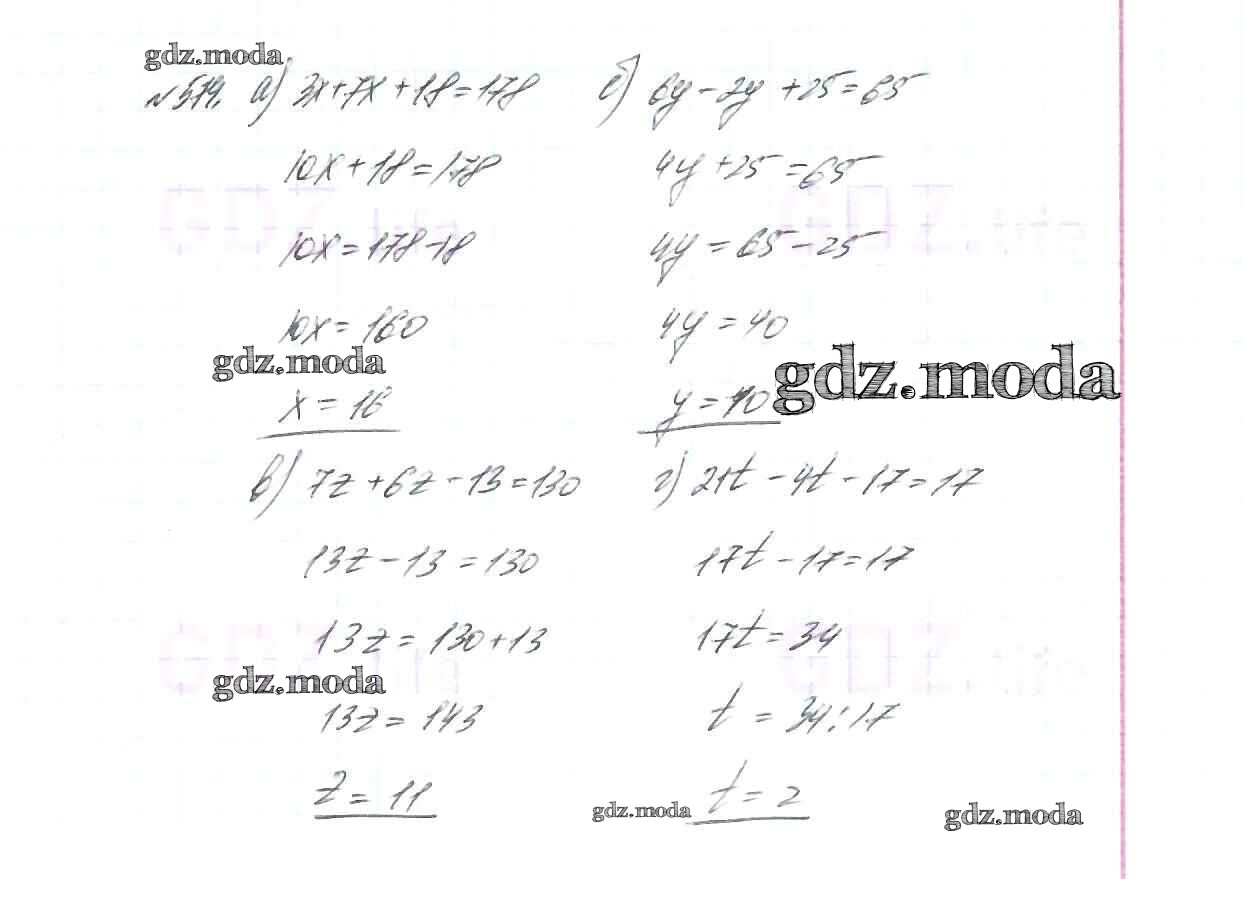 gdz.moda
№ 579. а) 3x+7x+18=178 б) 6y-2y+25=65
10x+18=178 4y+25=65
10x=178-18 4y=65-25
10x=160 4y=40
gdz.moda gdz.moda
x=16 y=10
в) 7z+6z-13=130 г) 21t-4t-17=17
13z-13=130 17t-17=17
13z=130+13 17t=34
gdz.moda
13z=143 t=34:17
z=11 t=2
gdz.moda gdz.moda